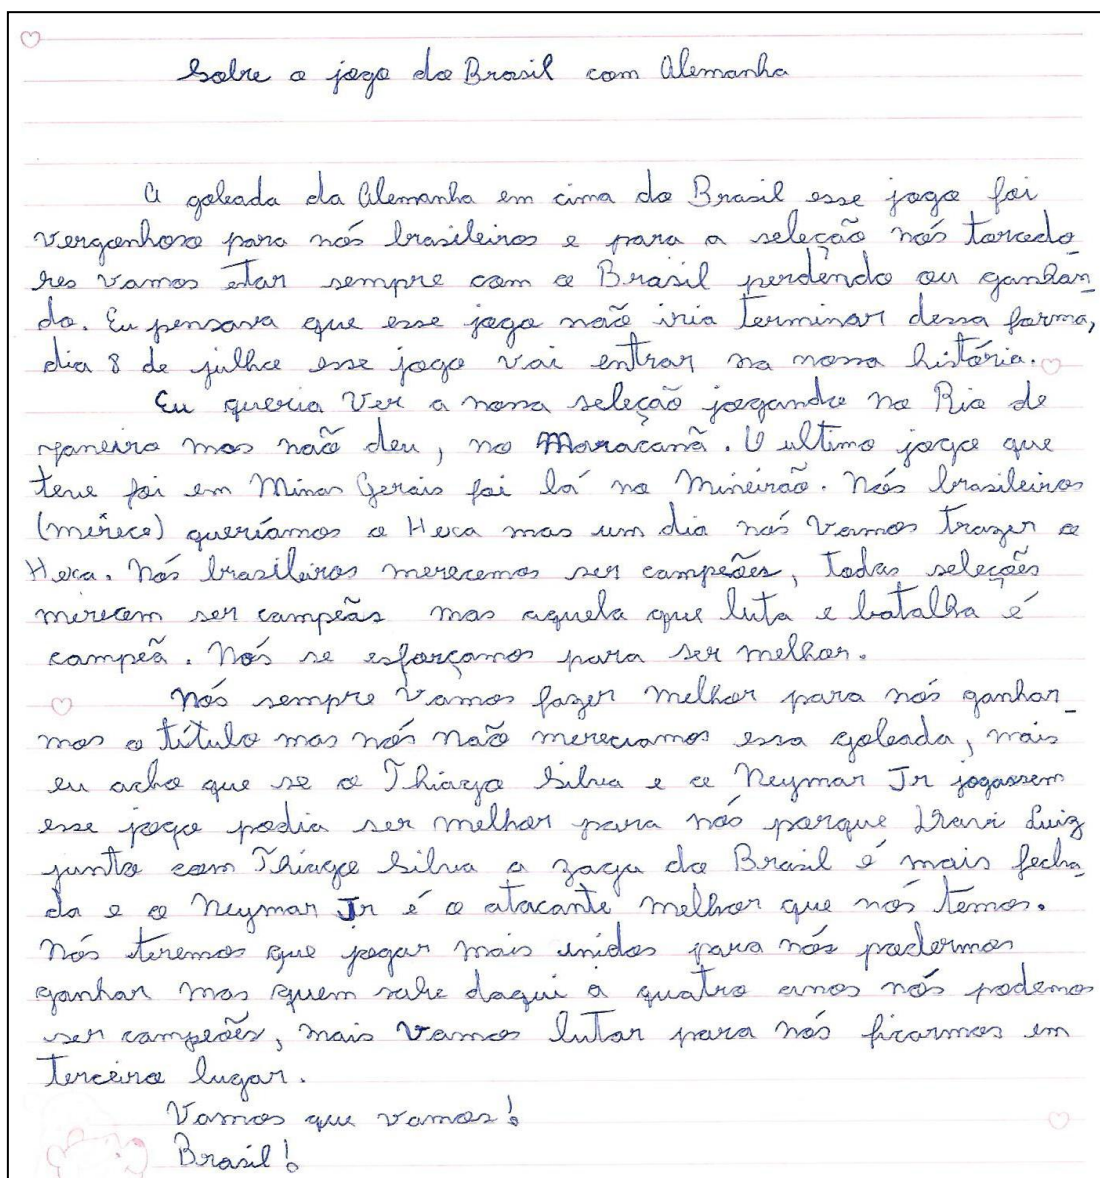 Sobre o jogo do Brasil com Alemanha
A goleada da Alemanha em cima do Brasil esse jogo foi
vergonhoso para nós brasileiros e para a seleção nós torcedo
res vamos estar sempre com o Brasil perdendo ou ganhan
do. Eu pensava que esse jogo não iria terminar dessa forma,
dia 8 de julho esse jogo vai entrar na nossa história.
Eu queria ver a nossa seleção jogando no Rio de
janeiro mas não deu, no Maracanã. O ultimo jogo que
teve foi em Minas Gerais foi lá no Mineirão. Nós brasileiros
(merece) queríamos o Hexa mas um dia nós vamos trazer o
Hexa. Nós brasileiros merecemos ser campeões, todas seleções
merecem ser campeãs mas aquela que luta e batalha é
campeã. Nós se esforçamos para ser melhor.
Nós sempre vamos fazer melhor para nós ganhar_
mos o título mas nós não mereciamos essa goleada, mais
eu acho que se o Thiago Silva e o Neymar Jr jogassem
esse jogo podia ser melhor para nós porque Davi Luiz
junto com Thiago Silva a zaga do Brasil é mais fecha_
da e o Neymar Jr é o atacante melhor que nós temos.
Nós teremos que jogar mais unidos para nós podermos
ganhar mas quem sabe daqui a quatro anos nós podemos
ser campeões, mais vamos lutar para nós ficarmos em
terceiro lugar.
Vamos que vamos!
Brasil!